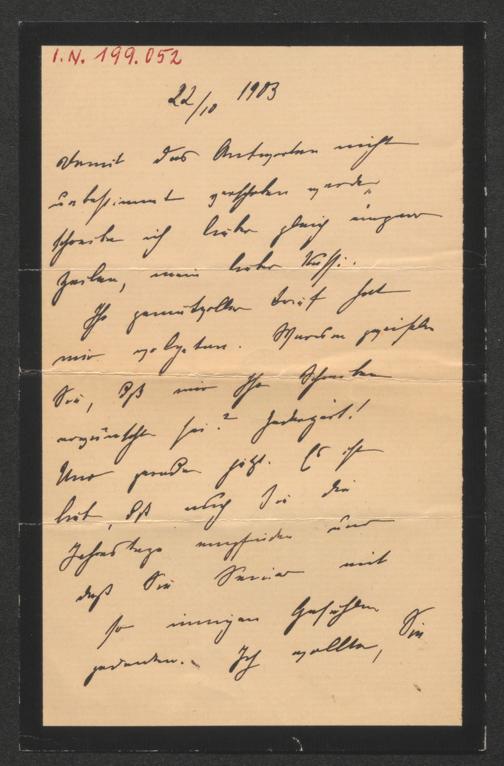 I.N. 199.052
22/10 1903
Damit das Antworten nicht
unbestimmt verschoben werde,
schreibe ich lieber gleich einige
Zeilen, mein lieber
Ihr gemütvoller Brief hat
mir wolgetan. Warum zweifeln
Sie, dß mir Ihr Schreiben
erwünscht sei? Jederzeit!
Und gerade jetzt. Es ist
lieb, dß auch Sie die
Jahrestage empfinden und
daß Sie mit
so innigen Gefühlen
gedenken. Ich wollte, Sie